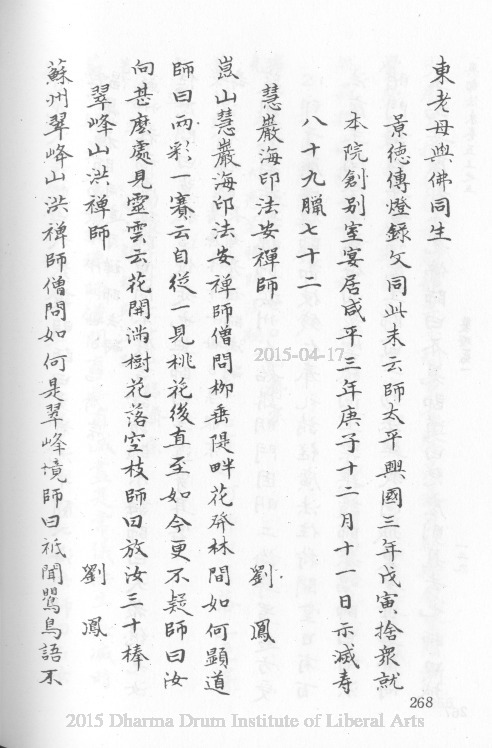 東老母與佛同生
景德傳燈錄文同此末云師太平興國三年戊寅捨衆就
本院創別室宴居咸平三年庚子十二月十一日示滅壽
八十九臘七十二
慧巖海印法安禪師
劉鳳
崑山慧巖海印法安禪師僧問柳垂隄畔花發林間如何顯道
師曰兩彩一賽云自從一見桃花後直至如今更不疑師曰汝
向甚麼處見靈雲云花開滿樹花落空枝師曰放汝三十棒
翠峰山洪禅師
劉鳳
蘇州翠峰山洪禅師僧問如何是翠峰境師曰祗聞鸎鳥語不
268
2015-04-17
2015 Dharma Drum Institute of Liberal Arts